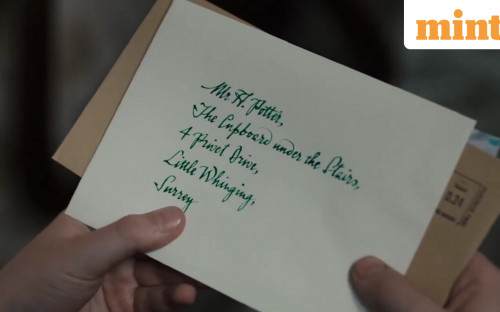 mint
Mr H. Potter,
The Cupboard under the Stairs,
4 Privet Drive,
Little Whinging,
Surrey
0.24